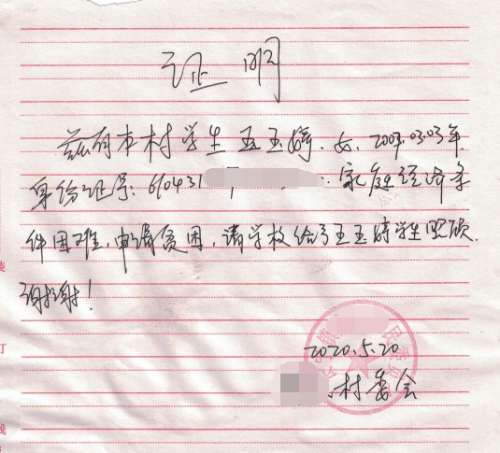 证明
兹有本村学生王玉婷,女,2007.03.03年.
身份证号:610431 家庭经济条
件困难,申请贫困,请学校给予王玉婷学生照顾.
谢谢!
2020.5.20
村委会
装
订
线